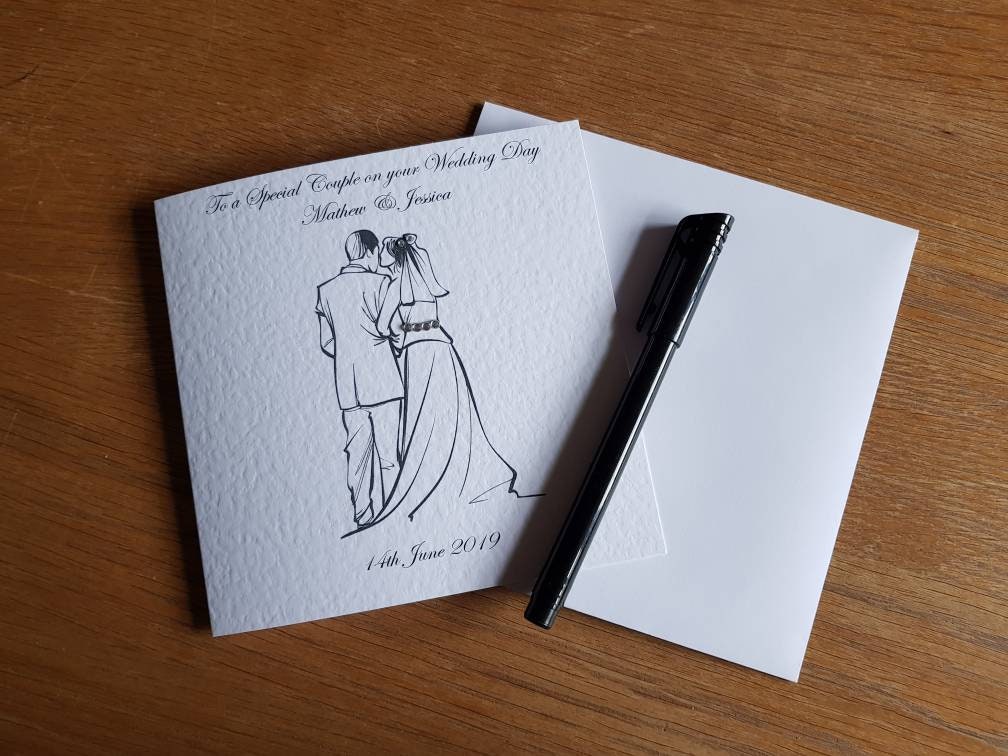 To a Special Couple on your Wedding Day
Mathew & Jessica
14th June 2019